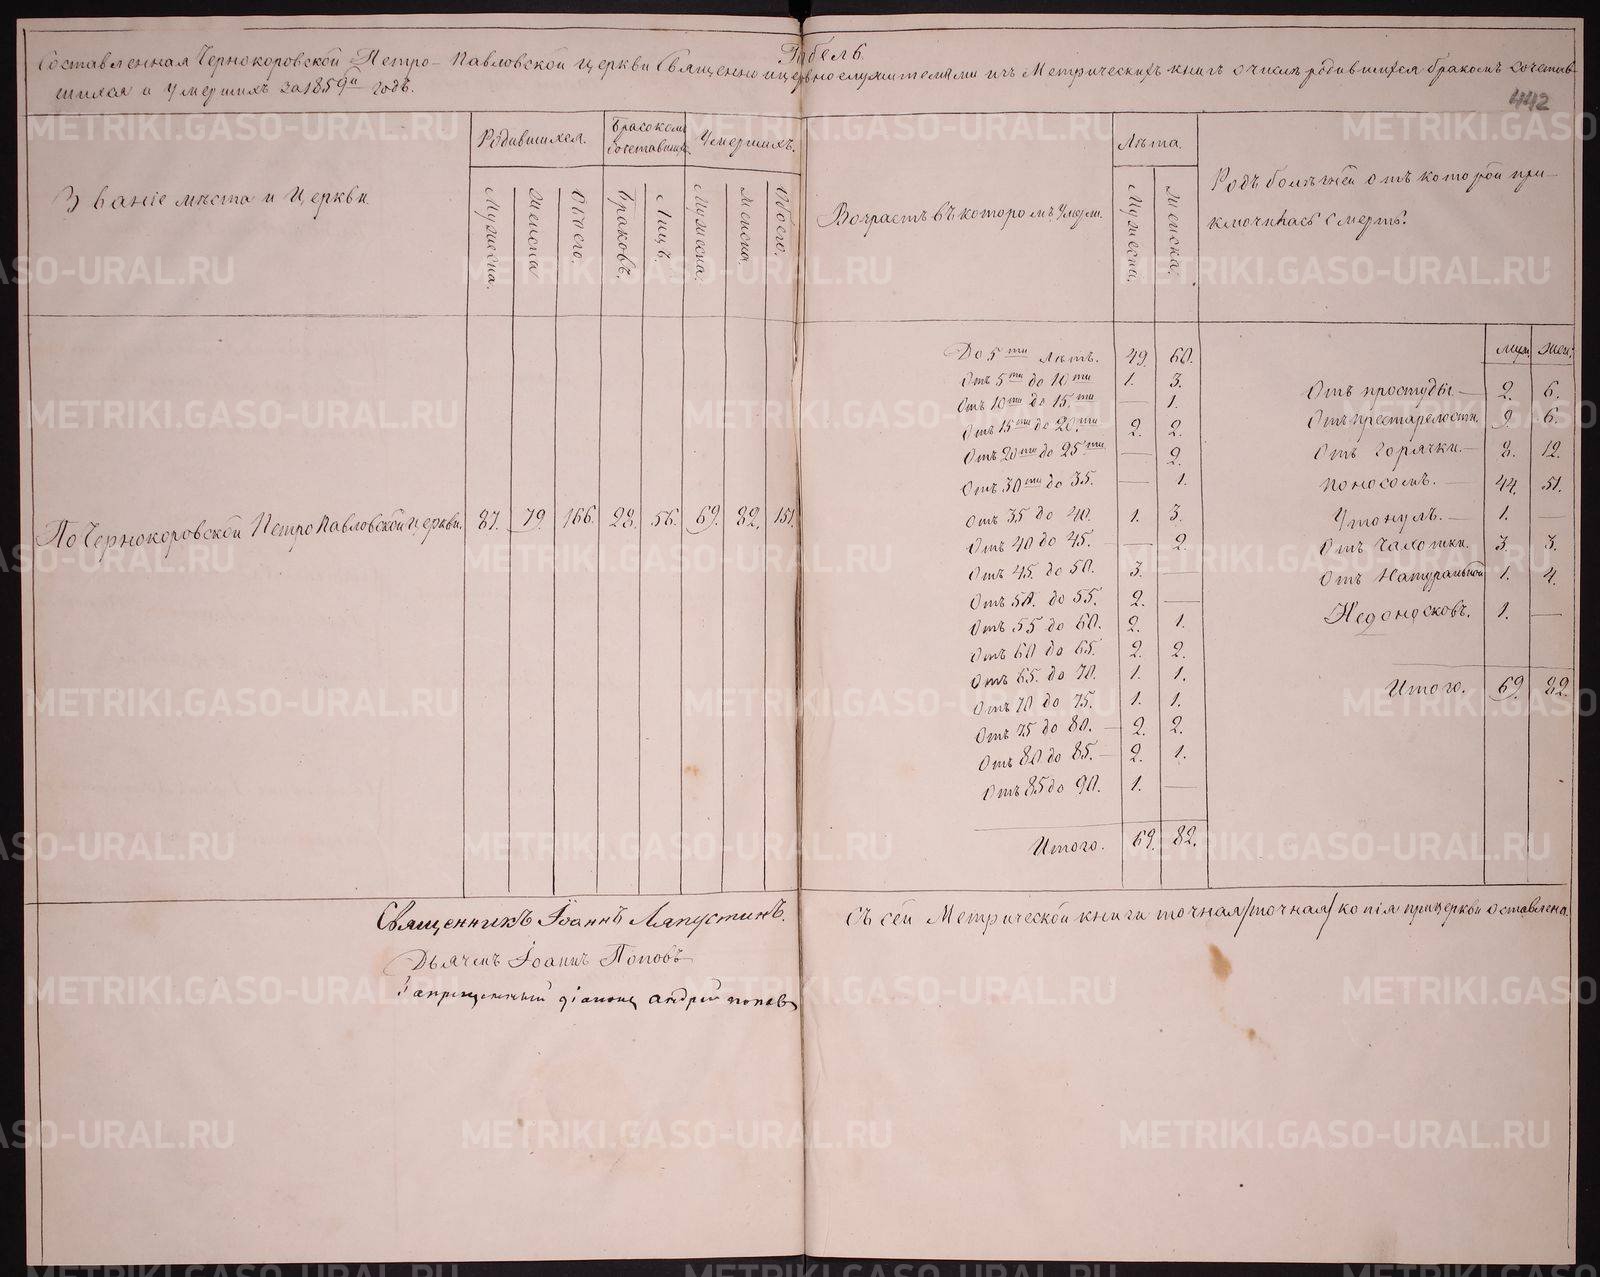 Табель
Составленная Чернокоровской Петро-Павловской церкви Священно и церковно служителями изъ Метрическихъ книгъ о числѣ родившихся бракомъ сочетав-
шихся и умершихъ за 1859й годъ.
442
Званіе мѣста и Церкви
Родившихся.
Бракомъ сочетавших.
Умершихъ.
Мужеска.
Женска
Обоего.
Браковъ.
Лицъ.
Мужеска.
Женска.
Обоего.
Возрастъ въ которомъ умерли.
Лѣта.
Мужеска.
Женска.
Родъ болѣзней отъ которой при-
ключилась смерть.
По Чернокоровской Петро Павловской церкви. 87. 79. 166. 28. 56. 69. 82. 151.
До 5ти лѣтъ. 49. 60.
Отъ 5ти до 10ти 1. 3.
Отъ 10ти до 15.ти — 1.
Отъ 15ти до 20.ти 2. 2.
Отъ 20ти до 25.ти — 2.
Отъ 30ти до 35. — 1.
Отъ 35 до 40. 1. 3.
Отъ 40 до 45. — 2.
Отъ 45. до 50. 3. —
Отъ 50. до 55. 2. —
Отъ 55 до 60. 2. 1.
Отъ 60 до 65. 2. 2.
Отъ 65. до 70. 1. 1.
Отъ 70 до 75. 1. 1.
Отъ 75 до 80. — 2. 2.
Отъ 80 до 85. — 2. 1.
Отъ 85 до 90. 1. —
Итого. 69. 82.
муж. жен.
Отъ простуды. — 2. 6.
Отъ престарелости. 9. 6.
Отъ Горячки. — 8. 12.
Поносомъ. — 44. 51.
Утонулъ. — 1. —
Отъ Чахотки. 3. 3.
Отъ Натуральной 1. 4.
Недоносковъ. 1. —
Итого. 69. 82.
Священникъ Іоаннъ Ляпустинъ.
Дьячекъ Іоаннъ Поповъ
Запрещенный діаконъ андрей попов
Съ сей Метрической книги точная /точная/ копія при церкви оставлена.
METRIKI.GASO-URAL.RU